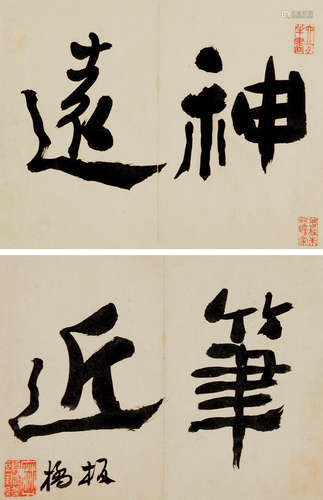 神遠
筆近
板橋